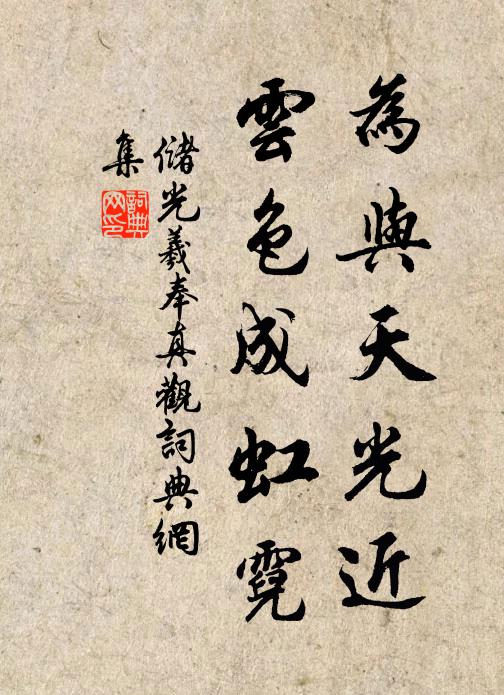 為與天光近
雲色成虹霓
儲光羲奉真觀詞典網
集
詞典
网印